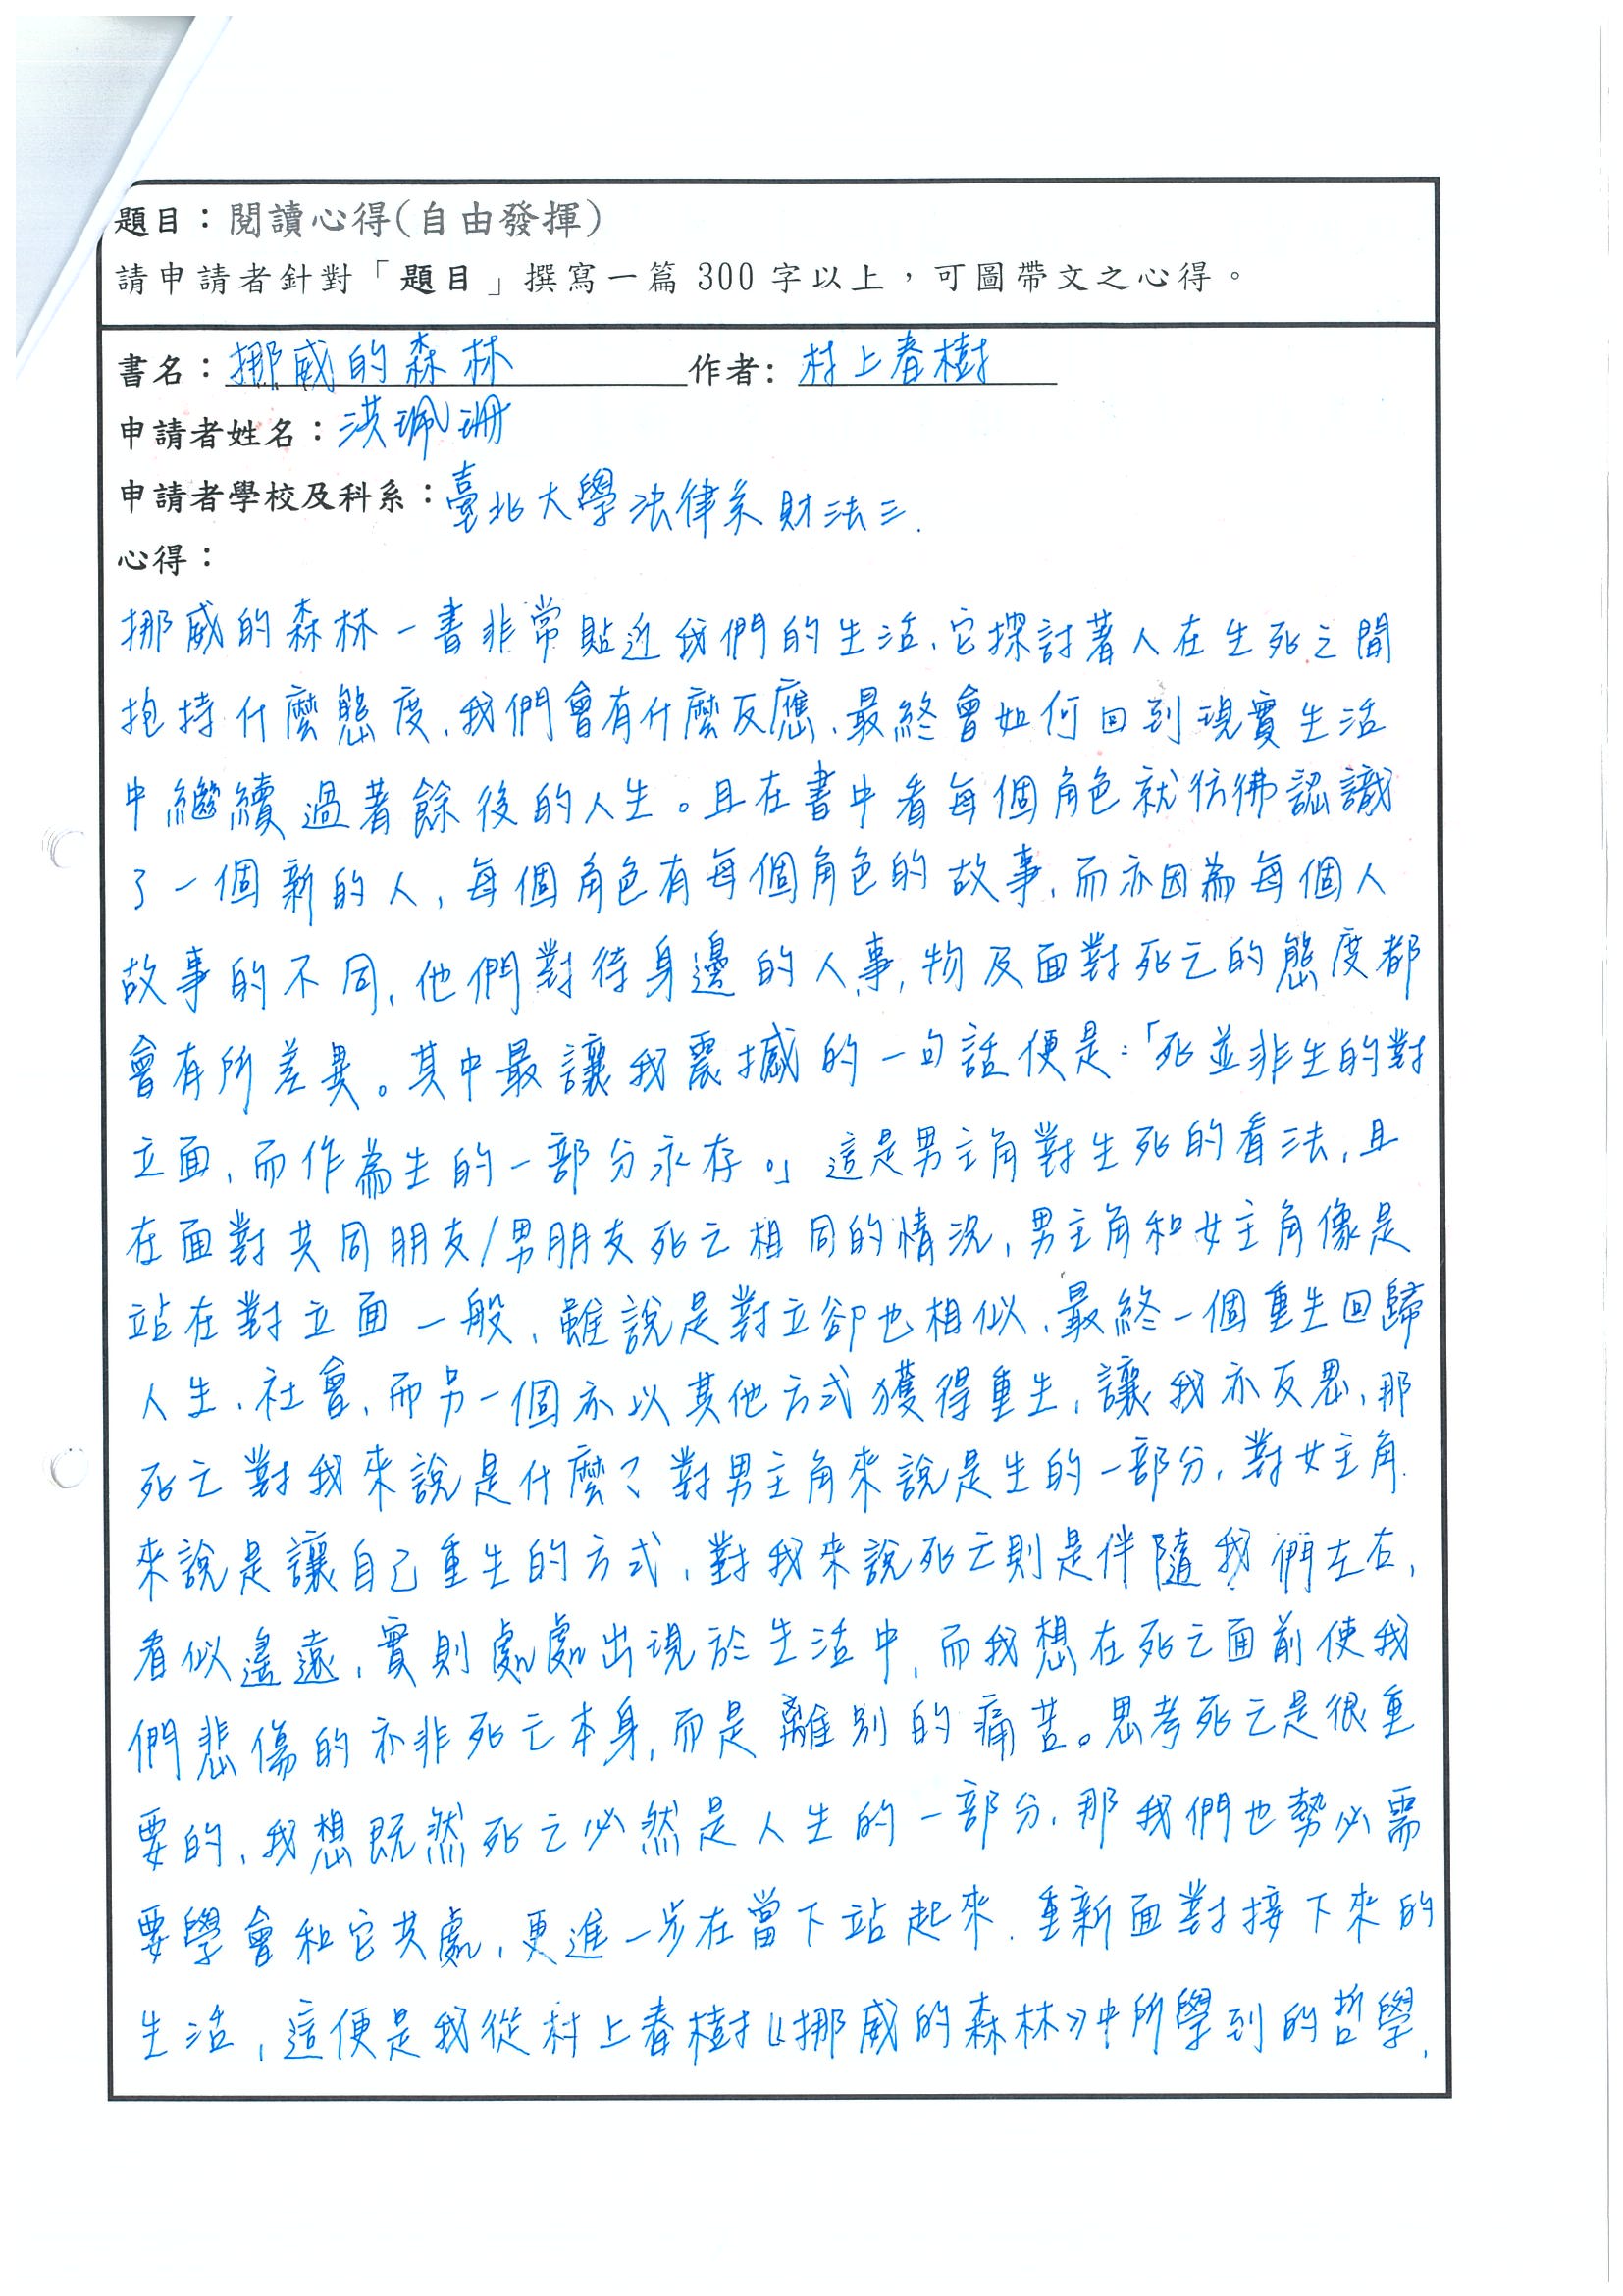 題目：閱讀心得(自由發揮)
請申請者針對「題目」撰寫一篇 300 字以上，可圖帶文之心得。
書名：挪威的森林 作者：村上春樹
申請者姓名：洪珮珊
申請者學校及科系：臺北大學法律系財法三.
心得：
挪威的森林一書非常貼近我們的生活，它探討著人在生死之間
抱持什麼態度，我們會有什麼反應，最終會如何回到現實生活
中繼續過著餘後的人生。且在書中看每個角色就彷彿認識
了一個新的人，每個角色有每個角色的故事，而亦因為每個人
故事的不同，他們對待身邊的人、事、物及面對死亡的態度都
會有所差異。其中最讓我震撼的一句話便是：「死並非生的對
立面，而作為生的一部分永存。」這是男主角對生死的看法，且
在面對共同朋友/男朋友死亡相同的情況，男主角和女主角像是
站在對立面一般，雖說是對立卻也相似，最終一個重生回歸
人生、社會，而另一個亦以其他方式獲得重生，讓我亦反思，那
死亡對我來說是什麼？對男主角來說是生的一部分，對女主角
來說是讓自己重生的方式，對我來說死亡則是伴隨我們左右，
看似遙遠，實則處處出現於生活中，而我想在死亡面前使我
們悲傷的亦非死亡本身，而是離別的痛苦。思考死亡是很重
要的，我想既然死亡必然是人生的一部分，那我們也勢必需
要學會和它共處，更進一步在當下站起來，重新面對接下來的
生活，這便是我從村上春樹《挪威的森林》中所學到的哲學.